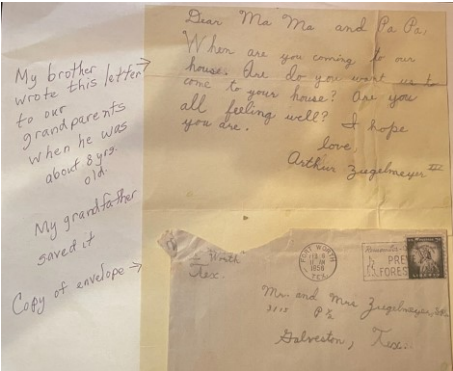 My brother
wrote this letter
to our
grandparents
when he was
about 8 yrs.
old.
My grandfather
saved it
Copy of envelope →
Dear Ma Ma and Pa Pa,
When are you coming to our
house. Are do you want us to
come to your house? Are you
all feeling well? I hope
you are.
love,
Arthur Ziegelmeyer III
Worth
Tex.
FORT WORTH
1958
TEX.
PRE
FORES
Mr. and Mrs Ziegelmeyer
P½
Galveston, Tex.